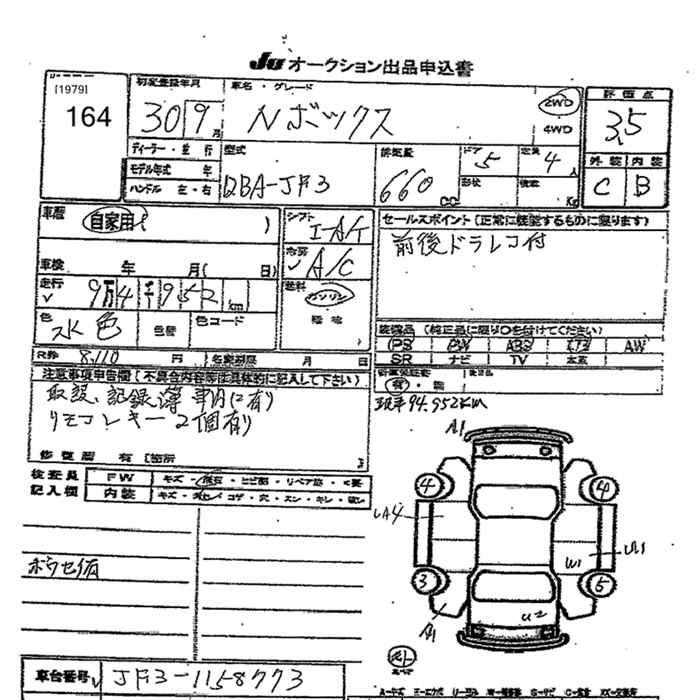 JU オークション出品申込書
[1979]
164
初度登録年月
30 9月
車名・グレード
Nボックス
2WD
4WD
評価点
3.5
外装 内装
C B
ディーラー・並行
モデル年式 年
ハンドル 左・右
型式
DBA-JF3
排気量
660 CC
ドア
5
定員
4 人
形状
積載
Kg
車歴
自家用( )
シフト
I-A/T
冷房
A/C
車検 年 月( 日)
走行
9万4千952km
燃料
ガソリン
軽油
色
水色
色替
色コード
R券 8,110 円
名変期限 月 日
セールスポイント(正常に機能するものに限ります)
前後ドラレコ付
装備品 (純正品に限り○を付けてください)
PS PW ABS エアB AW
SR ナビ TV 本革
有・無
現車94.952KM
注意事項申告欄(不具合内容等は具体的に記入して下さい)
取説、記録簿 車内に有り
リモコンキー2個有り
修復歴 有(箇所
検査員
記入欄
FW
内装
ボウセイ有
A1
4
4
UA4
U1
W1
3
5
A1
U2
車台番号
JF3-1158773